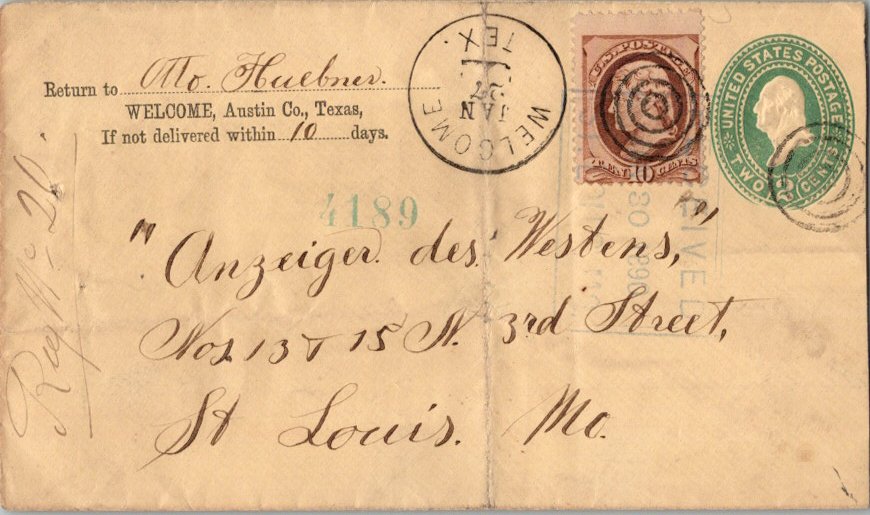 Return to Otto. Huebner.
WELCOME, Austin Co., Texas,
If not delivered within 10 days.
WELCOME
TEX.
JAN
27
U.S. POSTAGE
TEN 10 CENTS
UNITED STATES POSTAGE
TWO 2 CENTS
4189
Reg No 20.
"Anzeiger des Westens,"
Nos 13 & 15 N. 3rd Street,
St Louis. Mo.
30 1890